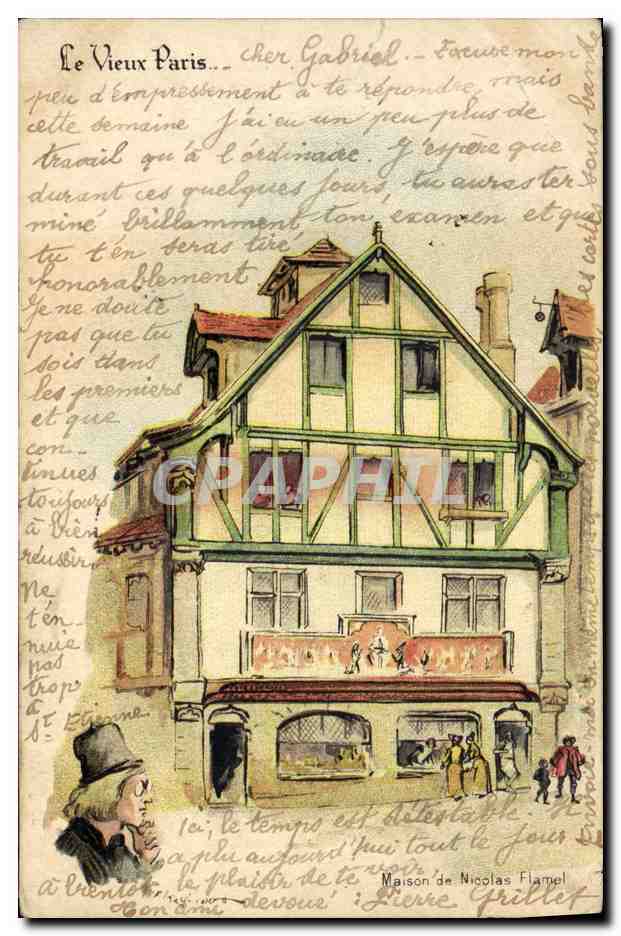 Le Vieux Paris...
cher Gabriel. - Excuse mon
peu d'empressement à te répondre, mais
cette semaine j'ai eu un peu plus de
travail qu'à l'ordinaire. J'espère que
durant ces quelques jours, tu auras ter
miné brillamment ton examen et que
tu t'en seras tiré
honorablement
Je ne doute
pas que tu
sois dans
les premiers
et que
con-
tinues
toujours
à bien
réussir.
Ne
t'en-
nuie
pas
trop
à
St Etienne.
Ici, le temps est détestable. Il
a plu aujourd'hui tout le jour
à bientôt le plaisir de te voir,
Ton ami dévoué : Pierre Grillet
Envoie-moi en même temps que nouvelles, es cartes sous bande
Maison de Nicolas Flamel
CPAPHIL